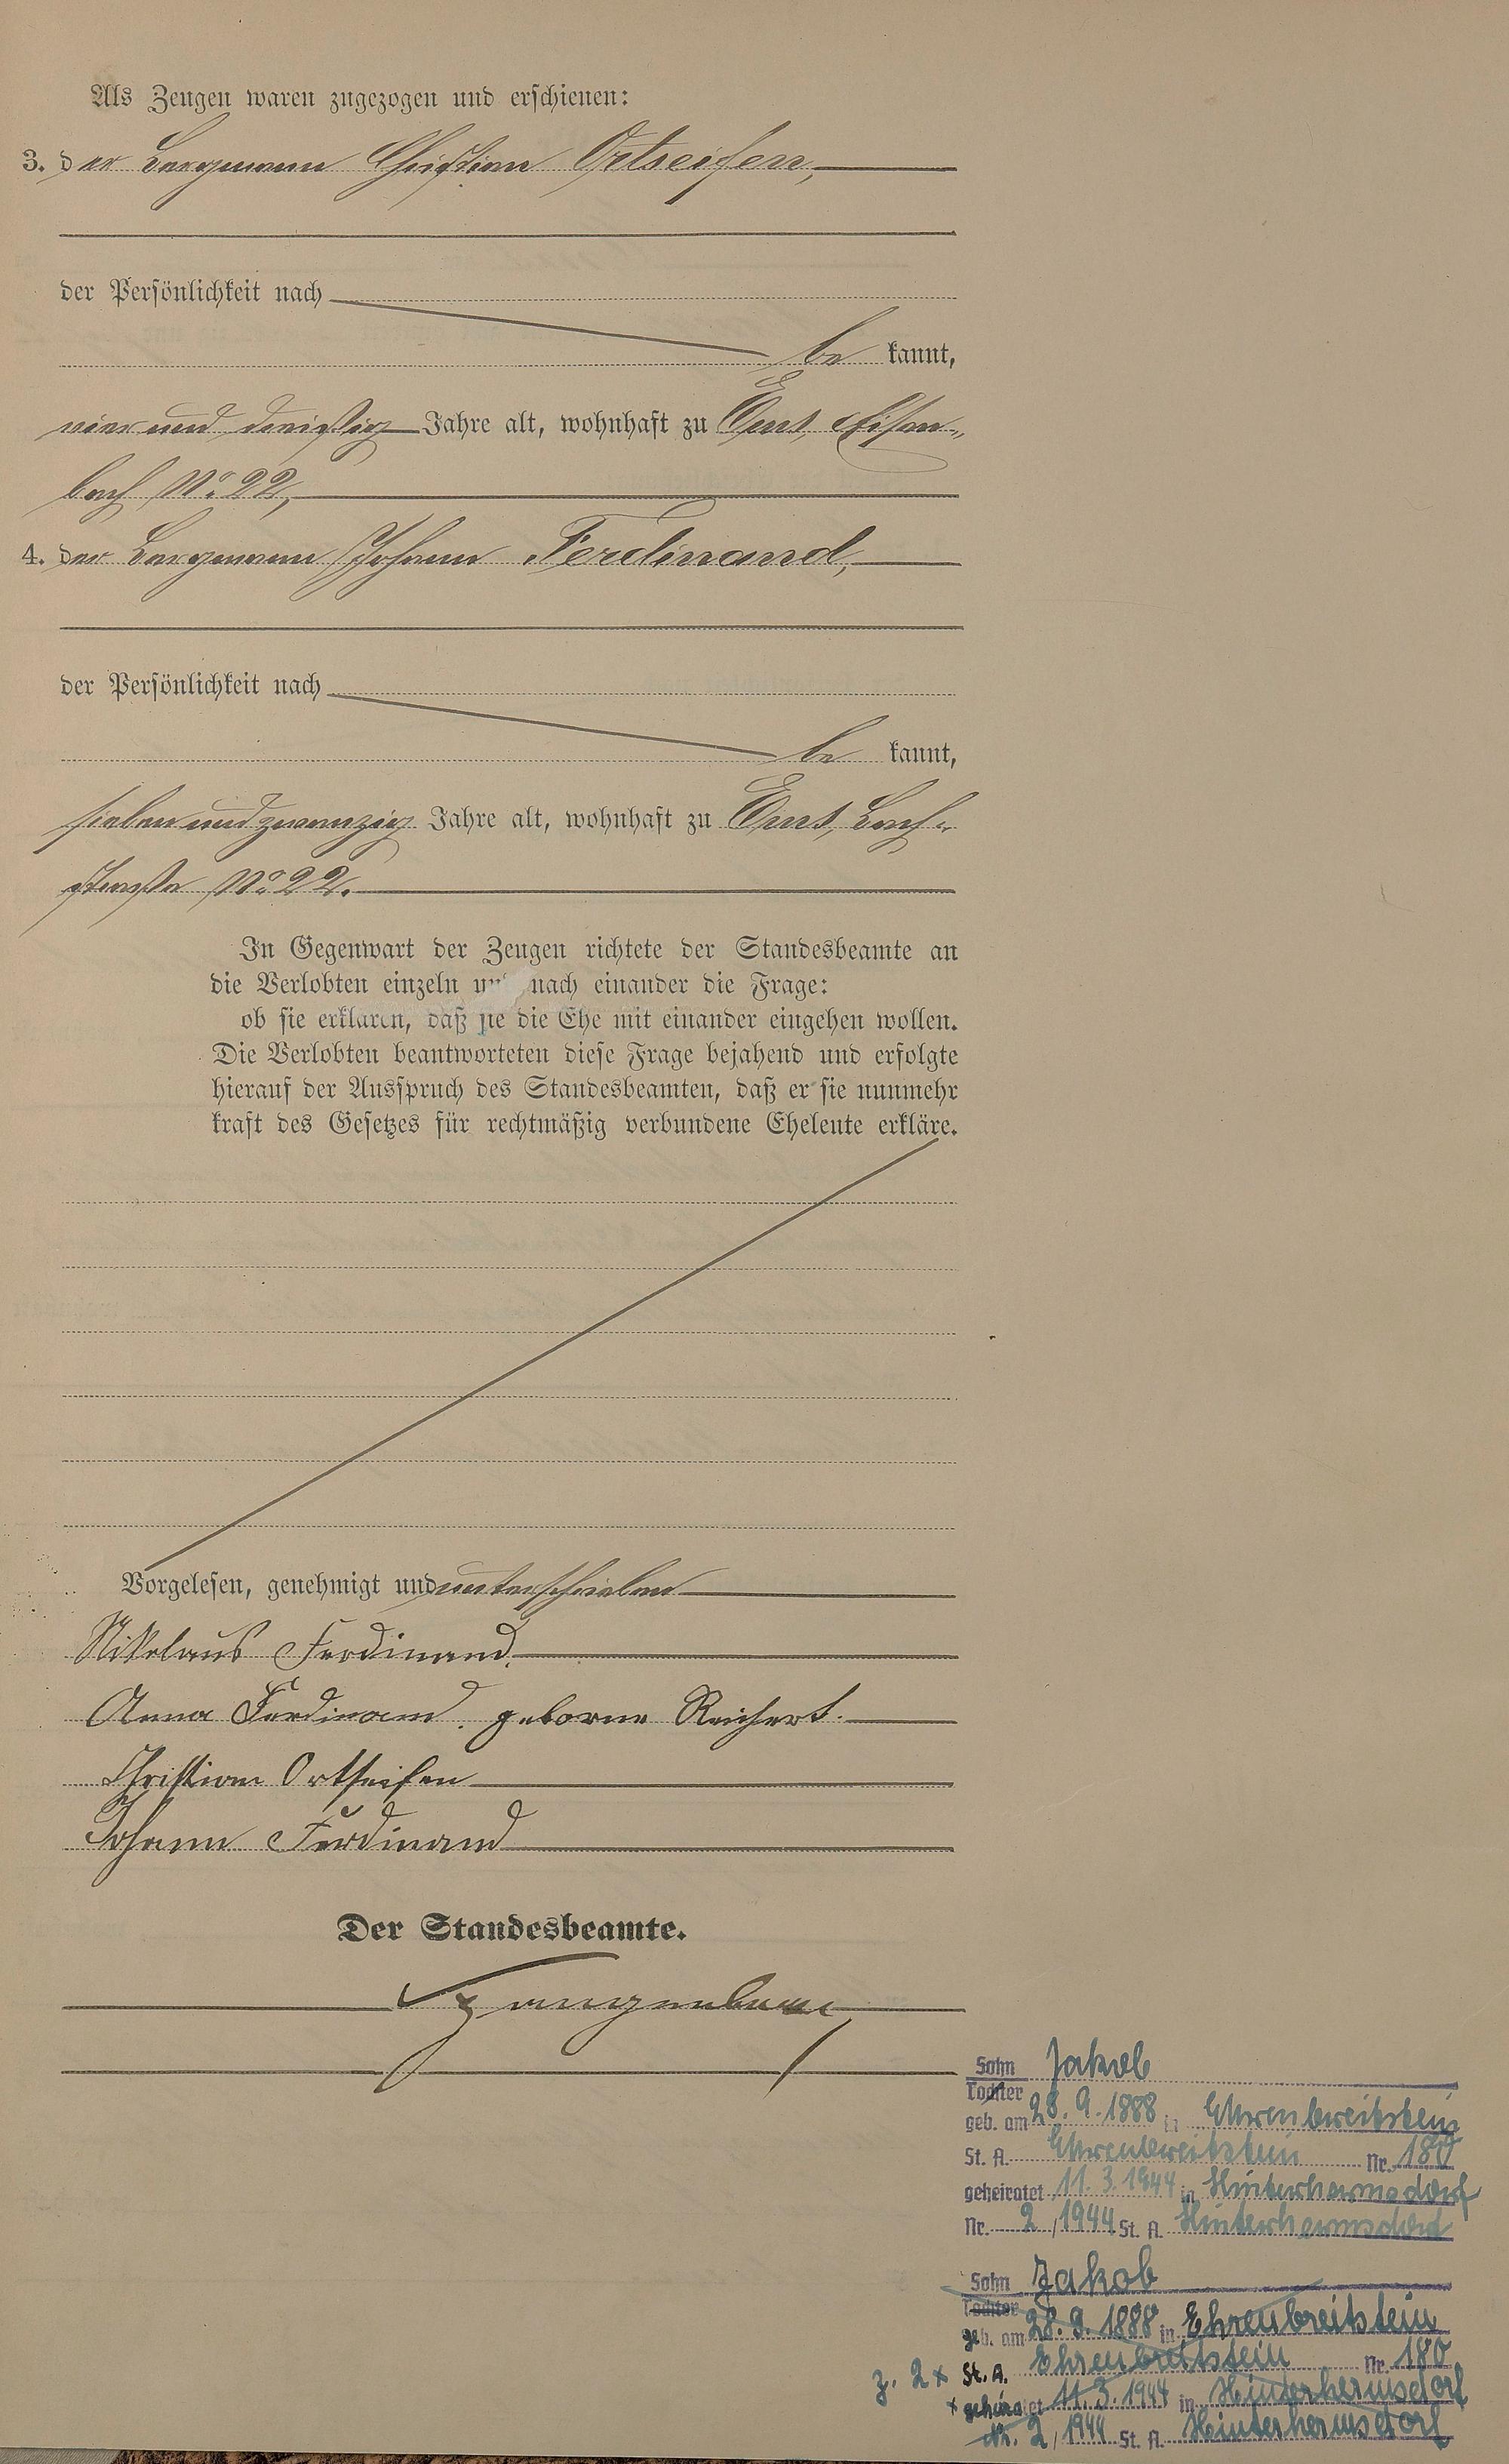 Als Zeugen waren zugezogen und erschienen:
3. der Bergmann Christian Ortseifen,
der Persönlichkeit nach
be kannt,
vier und dreißig Jahre alt, wohnhaft zu Ems, Eisen-
bach No. 22,
4. der Bergmann Johann Ferdinand,
der Persönlichkeit nach
be kannt,
sieben und zwanzig Jahre alt, wohnhaft zu Ems, Bach-
straße No. 22.
In Gegenwart der Zeugen richtete der Standesbeamte an
die Verlobten einzeln und nach einander die Frage:
ob sie erklären, daß sie die Ehe mit einander eingehen wollen.
Die Verlobten beantworteten diese Frage bejahend und erfolgte
hierauf der Ausspruch des Standesbeamten, daß er sie nunmehr
kraft des Gesetzes für rechtmäßig verbundene Eheleute erkläre.
Vorgelesen, genehmigt und unterschrieben
Nikolaus Ferdinand.
Anna Ferdinand. geborne Reichert.
Christian Ortseifen
Johann Ferdinand
Der Standesbeamte.
Sohn Jakob
Tochter
geb. am 28. 9. 1888 in Ehrenbreitstein
St. A. Ehrenbreitstein Nr. 180
geheiratet 11. 3. 1944 in Hinterhermsdorf
Nr. 2 / 1944 St. A. Hinterhermsdorf
Sohn Jakob
Tochter
geb. am 28. 9. 1888 in Ehrenbreitstein
z. 2 x St. A. Ehrenbreitstein Nr. 180
x geheiratet 11. 3. 1944 in Hinterhermsdorf
Nr. 2 / 1944 St. A. Hinterhermsdorf